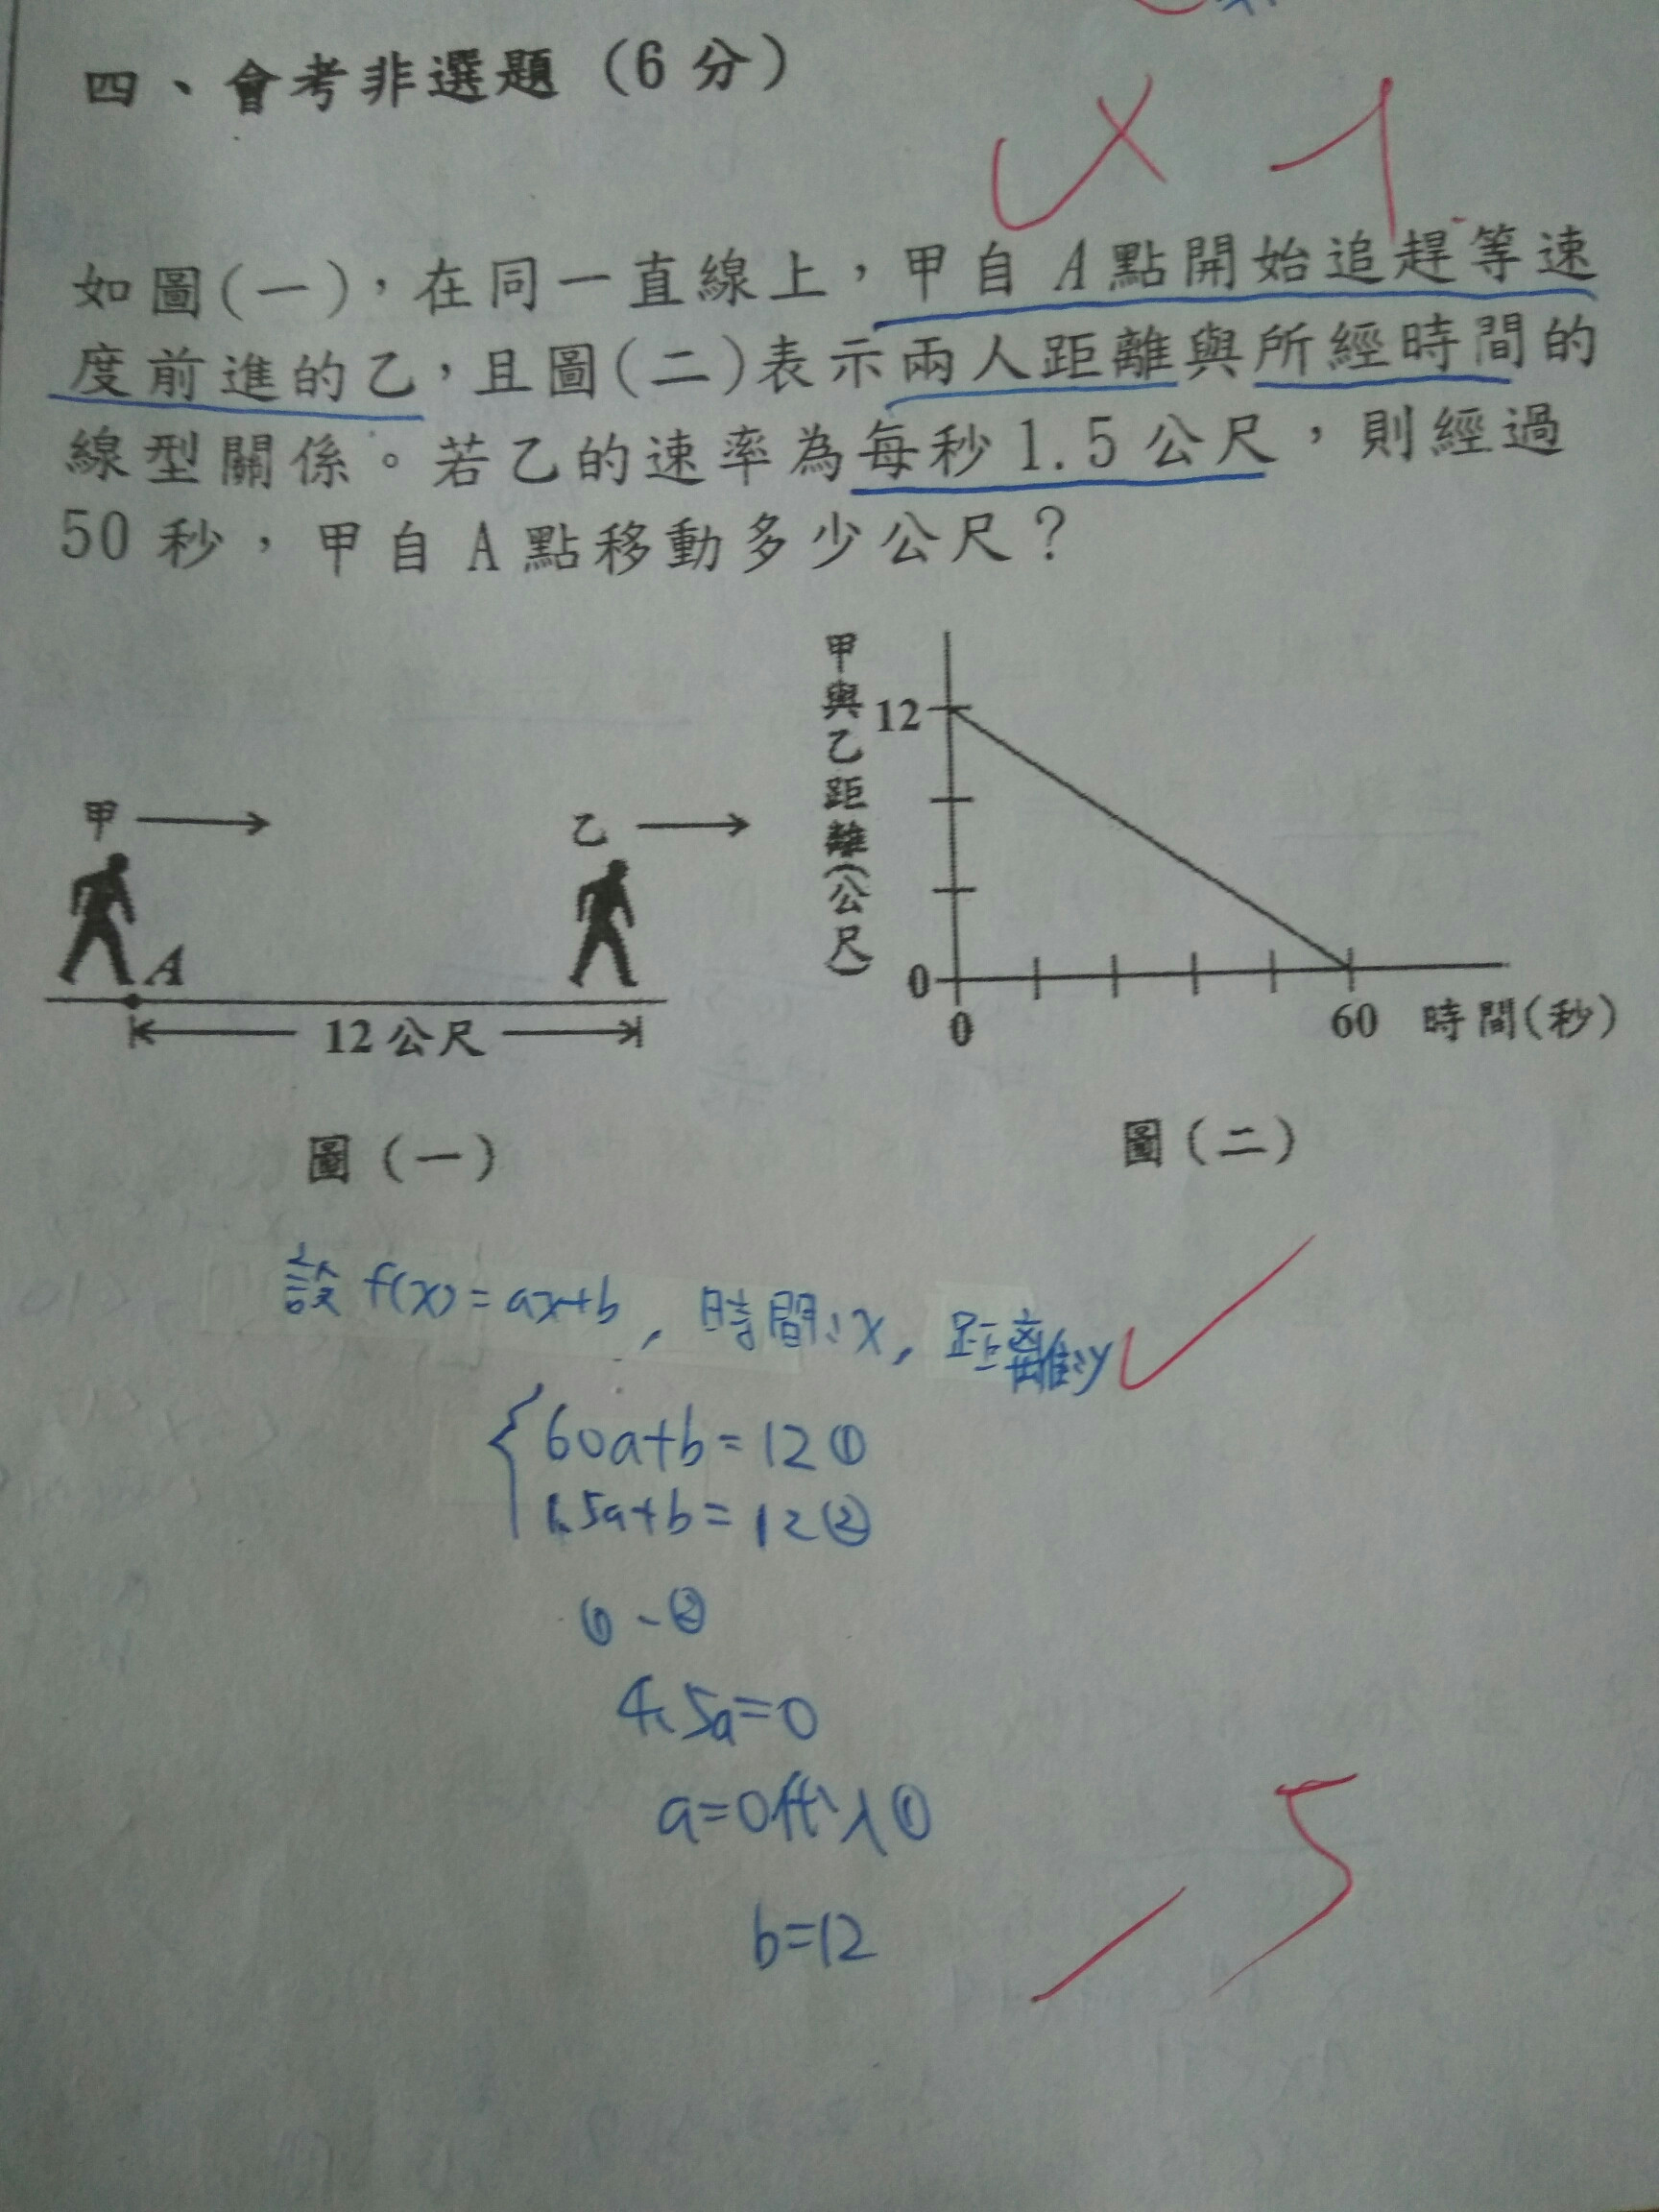 四、會考非選題（6分）
如圖(一)，在同一直線上，甲自A點開始追趕等速
度前進的乙，且圖(二)表示兩人距離與所經時間的
線型關係。若乙的速率為每秒1.5公尺，則經過
50秒，甲自A點移動多少公尺？
甲
乙
A
12公尺
圖（一）
甲與乙距離(公尺)
12
0
0
60
時間(秒)
圖（二）
設f(x)=ax+b，時間:x，距離:y
60a+b=12①
1.5a+b=12②
①-②
4.5a=0
a=0代入①
b=12
5